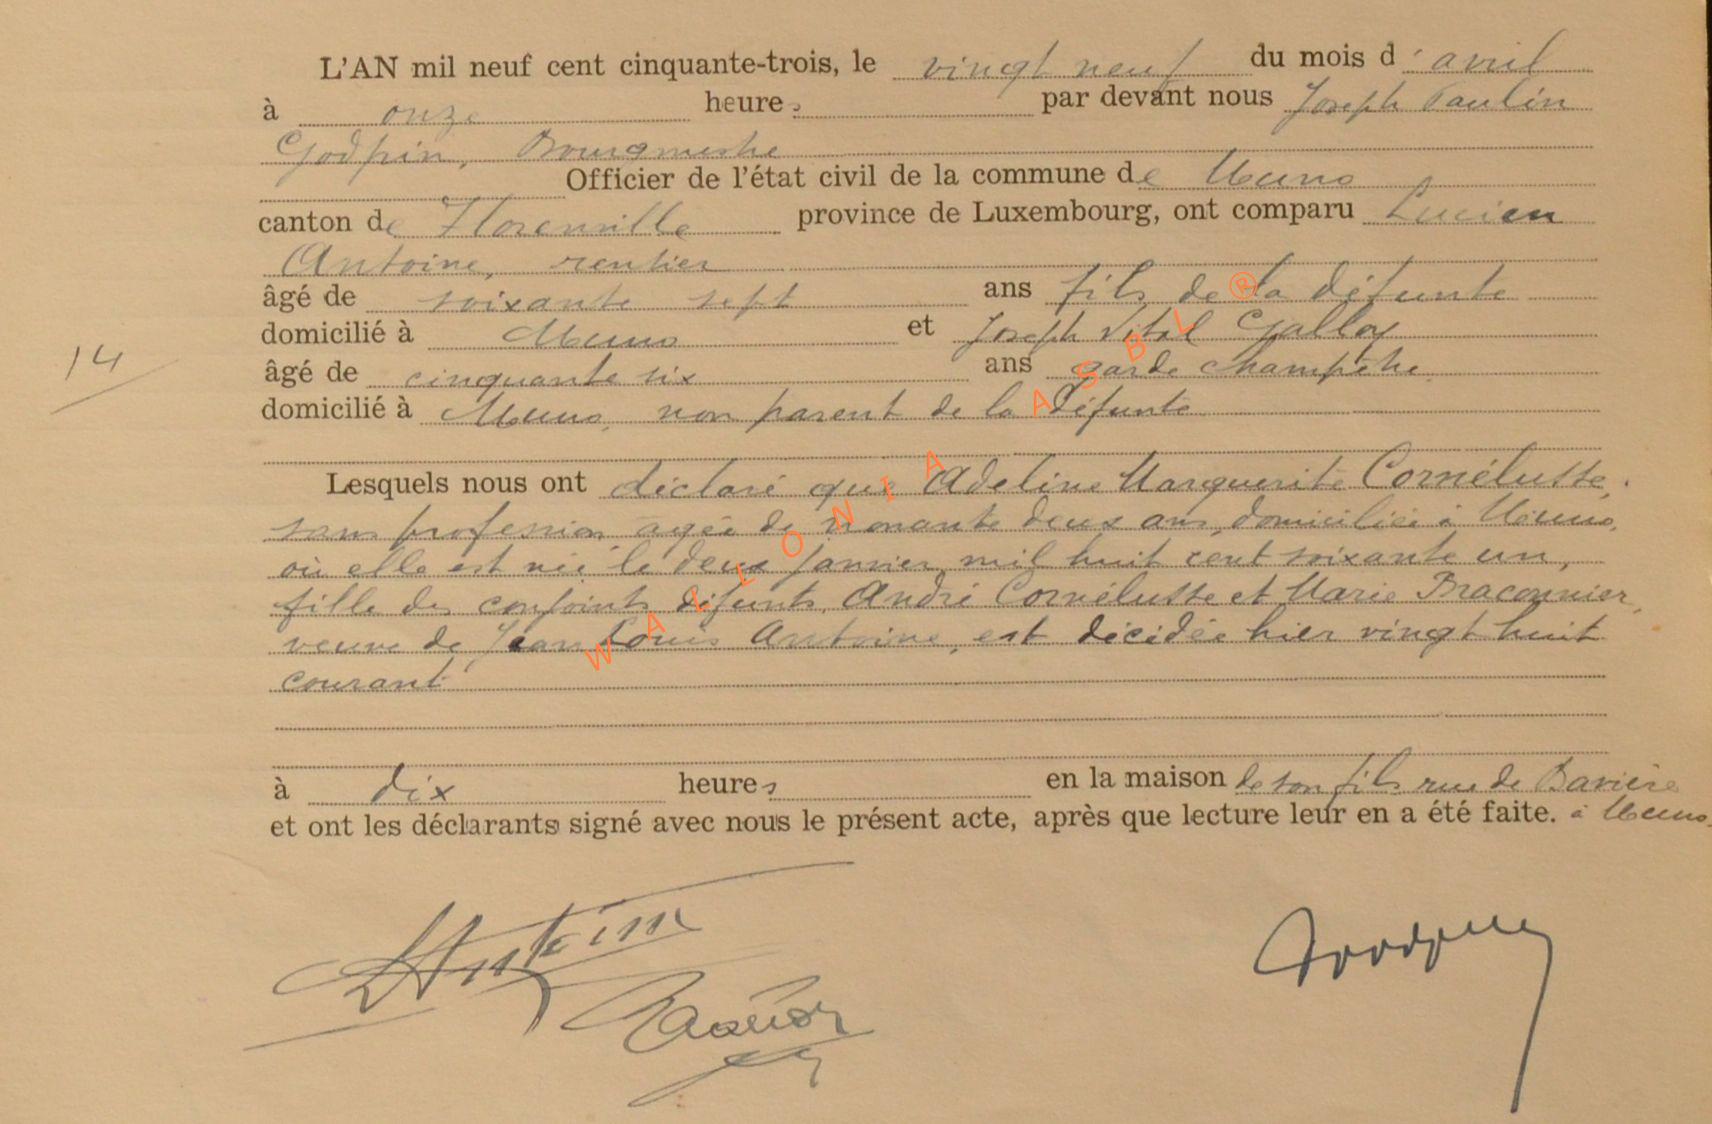 L'AN mil neuf cent cinquante-trois, le vingt neuf du mois d'avril
à onze heures par devant nous Joseph Paulin
Godfrin, Bourgmestre
Officier de l'état civil de la commune de Muno
canton de Florenville province de Luxembourg, ont comparu Lucien
Antoine, rentier
âgé de soixante sept ans fils de la défunte
domicilié à Muno et Joseph Vital Galloy
âgé de cinquante six ans garde champêtre
domicilié à Muno, non parent de la défunte
14
Lesquels nous ont déclaré que Adeline Marguerite Cornélusse,
sans profession agée de nonante deux ans, domiciliée à Muno,
où elle est née le deux janvier mil huit cent soixante un,
fille des conjoints défunts, André Cornélusse et Marie Braconnier,
veuve de Jean Louis Antoine, est décédée hier vingt huit
courant
à dix heures en la maison de son fils rue de Bavière
et ont les déclarants signé avec nous le présent acte, après que lecture leur en a été faite. à Muno.
WALLONIA ASBL ®